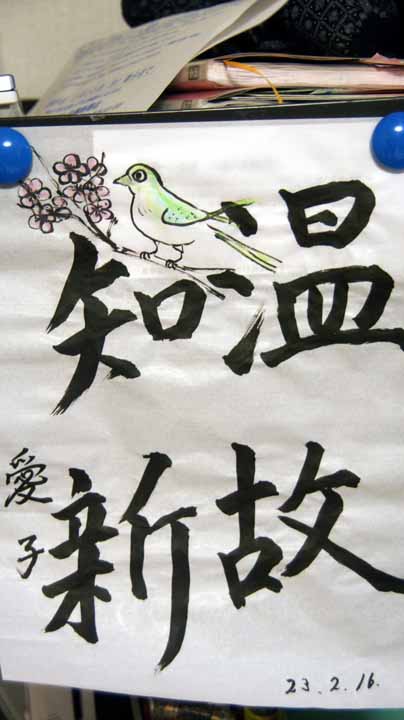 温故
知新
愛子
23.2.16.